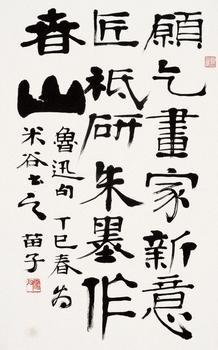 願乞畫家新意
匠祗研朱墨作
春山
魯迅句 丁巳春为
米谷书之 苗子